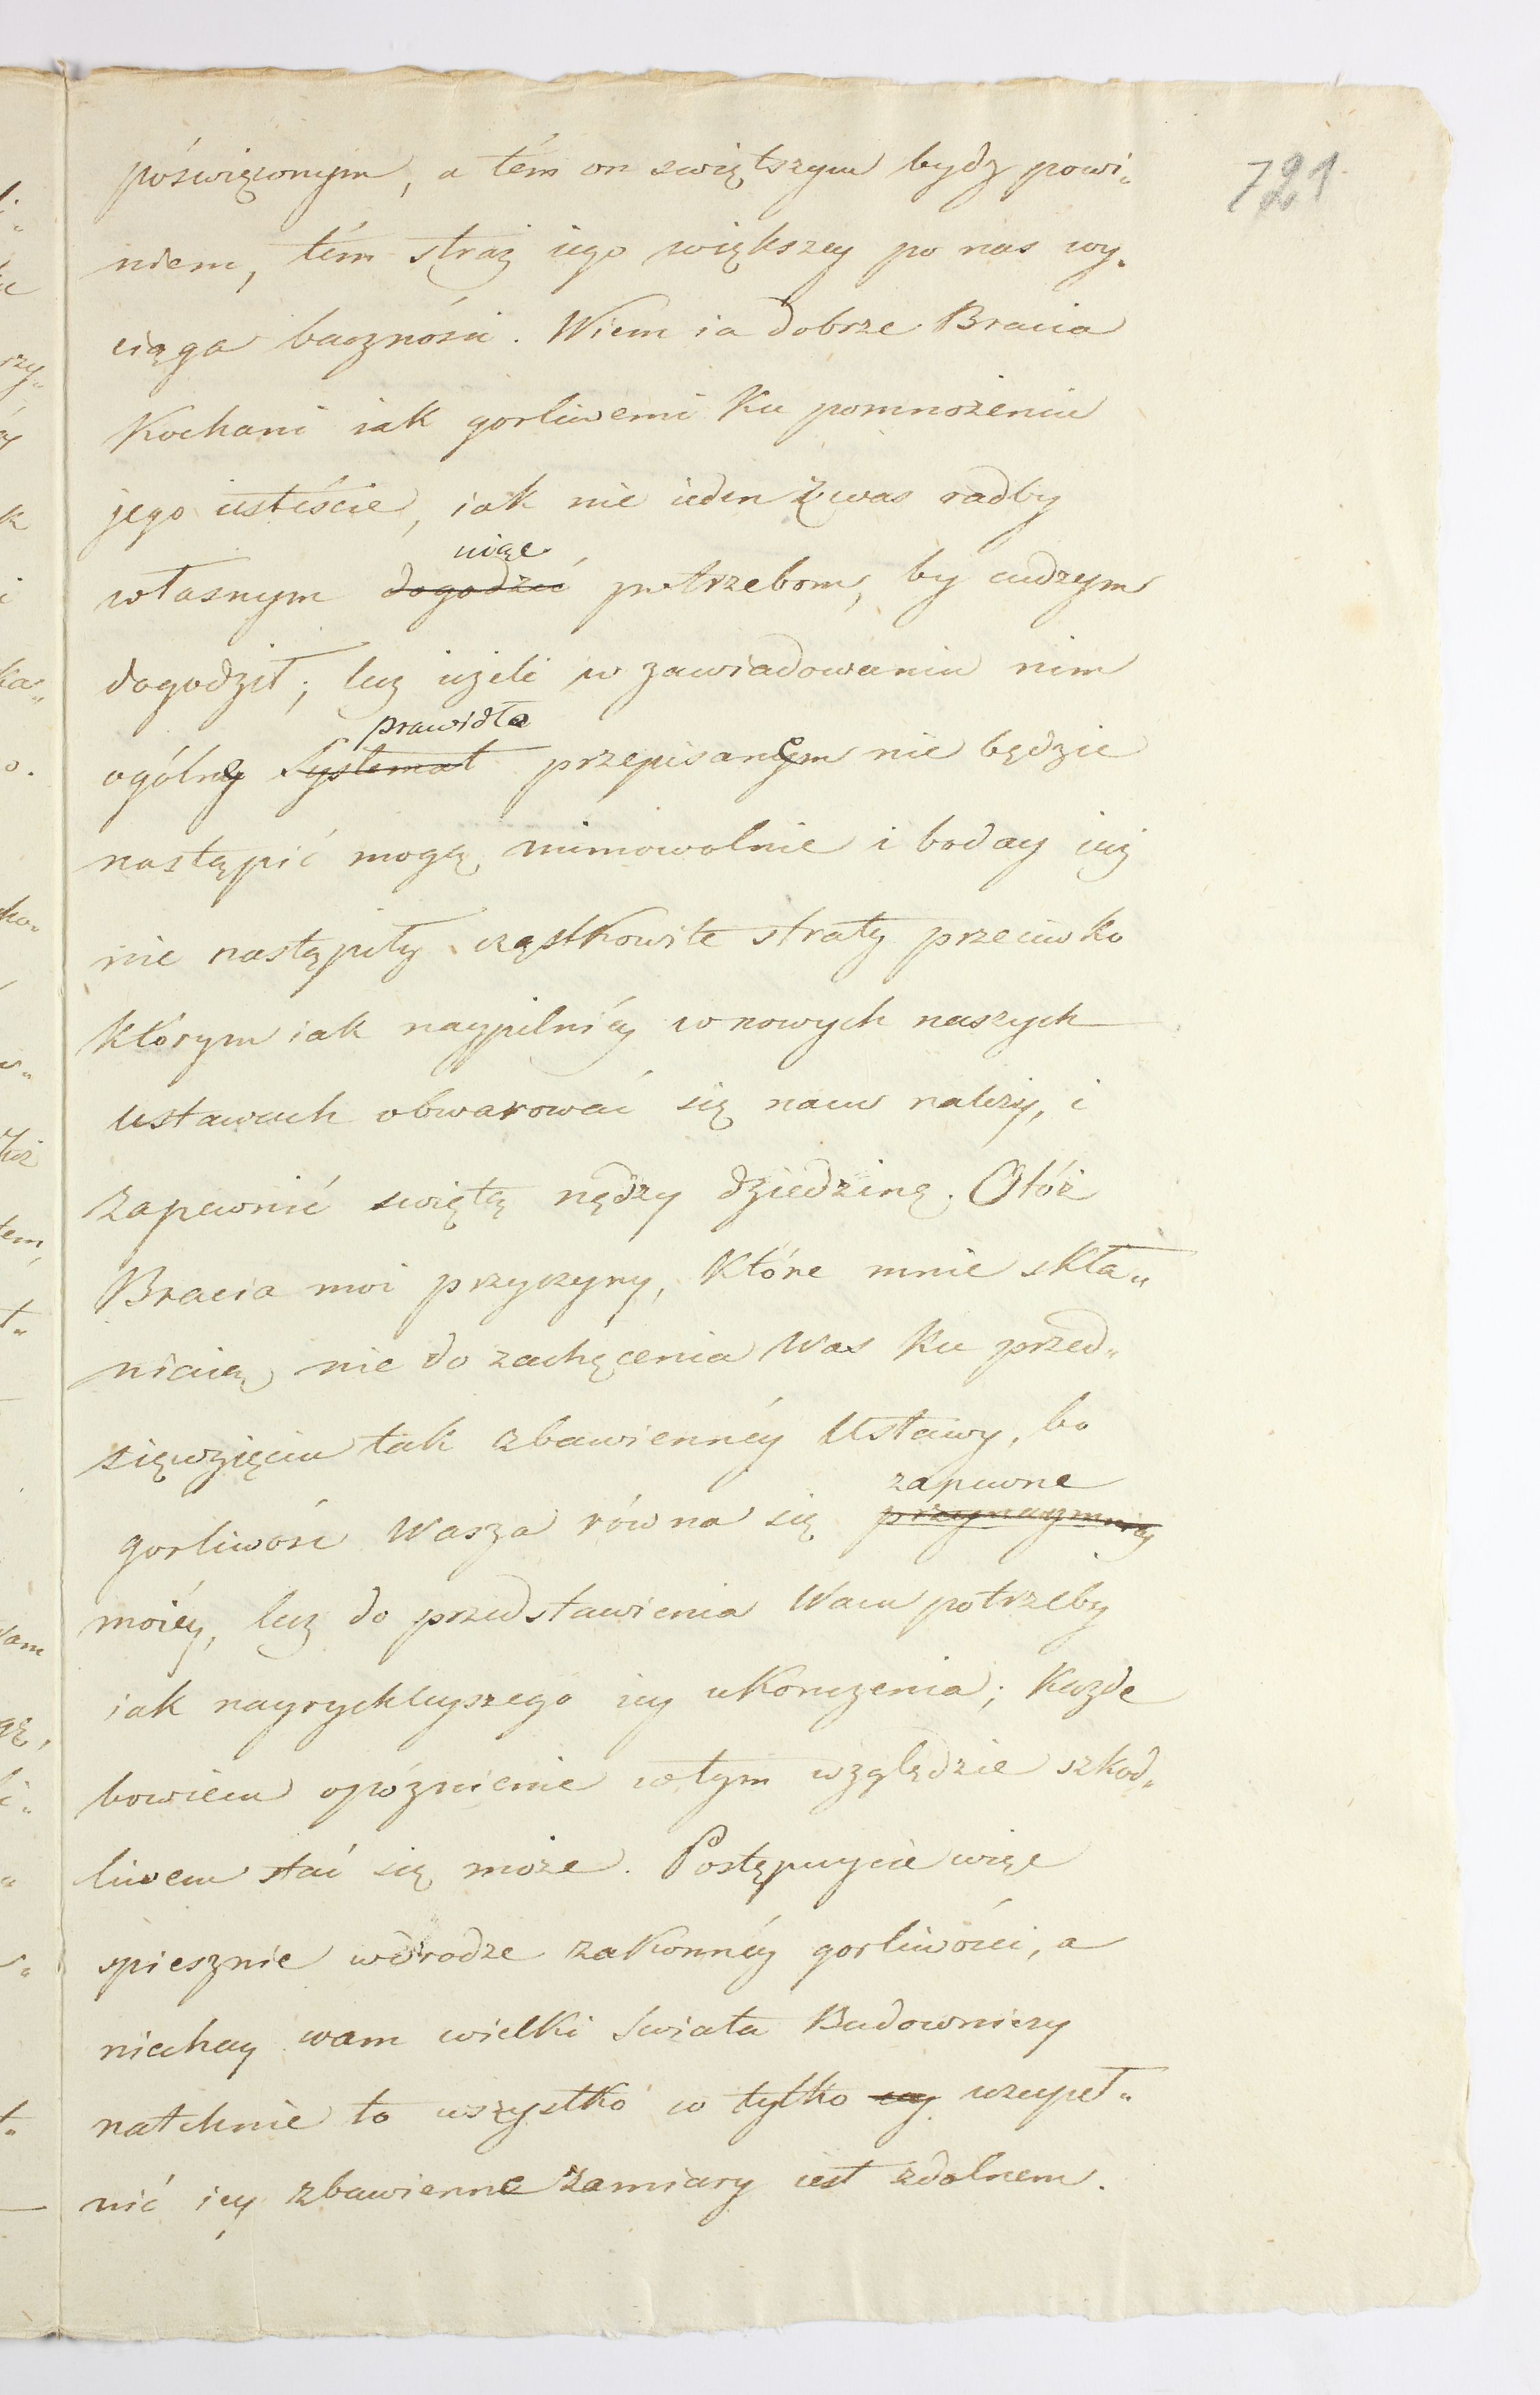 721
poświęconym, a tém on swiętszym bydz powi„
niem, tém straż iego większey po nas wy„
ciąga baczności. Wiem ia dobrze Bracia
Kochani iak gorliwemi Ku pomnożeniu
jego iesteście, iak nie ieden z was radby
uiąć
własnym dogodzić potrzebom, by cudzym
dogodził; lecz ieżeli w zawiadowaniu nim
prawidła
ogólne Systemat przepisanem nie będzie
nastąpić mogą, mimowolnie i boday iuż
nie nastąpiły cząstkowite straty przeciwko
którym iak naypilniéy w nowych naszych
ustawach obwarować się nam należy, i
zapewnić swiętą nędzy dziedzinę. Otóż
Bracia moi przyczyny, Które mnie skła„
niaią, nie do zachęcenia Was Ku przed„
sięwzięciu tak zbawiennéy Ustawy, bo
zapewne
gorliwość Wasza równa się przynaymniéy
moiéy, lecz do przedstawienia Wam potrzeby
iak nayrychleyszego iey ukończenia; Każde
bowiem opóznienie w tym względzie szkod„
liwem stać się może. Postępuycie więc
spiesznie w drodze zakonnéy gorliwości, a
niechay wam wielki Swiata Budowniczy
natchnie to wszystko co tylko iey uzupeł„
nić iey zbawienne zamiary iest zdolnem.